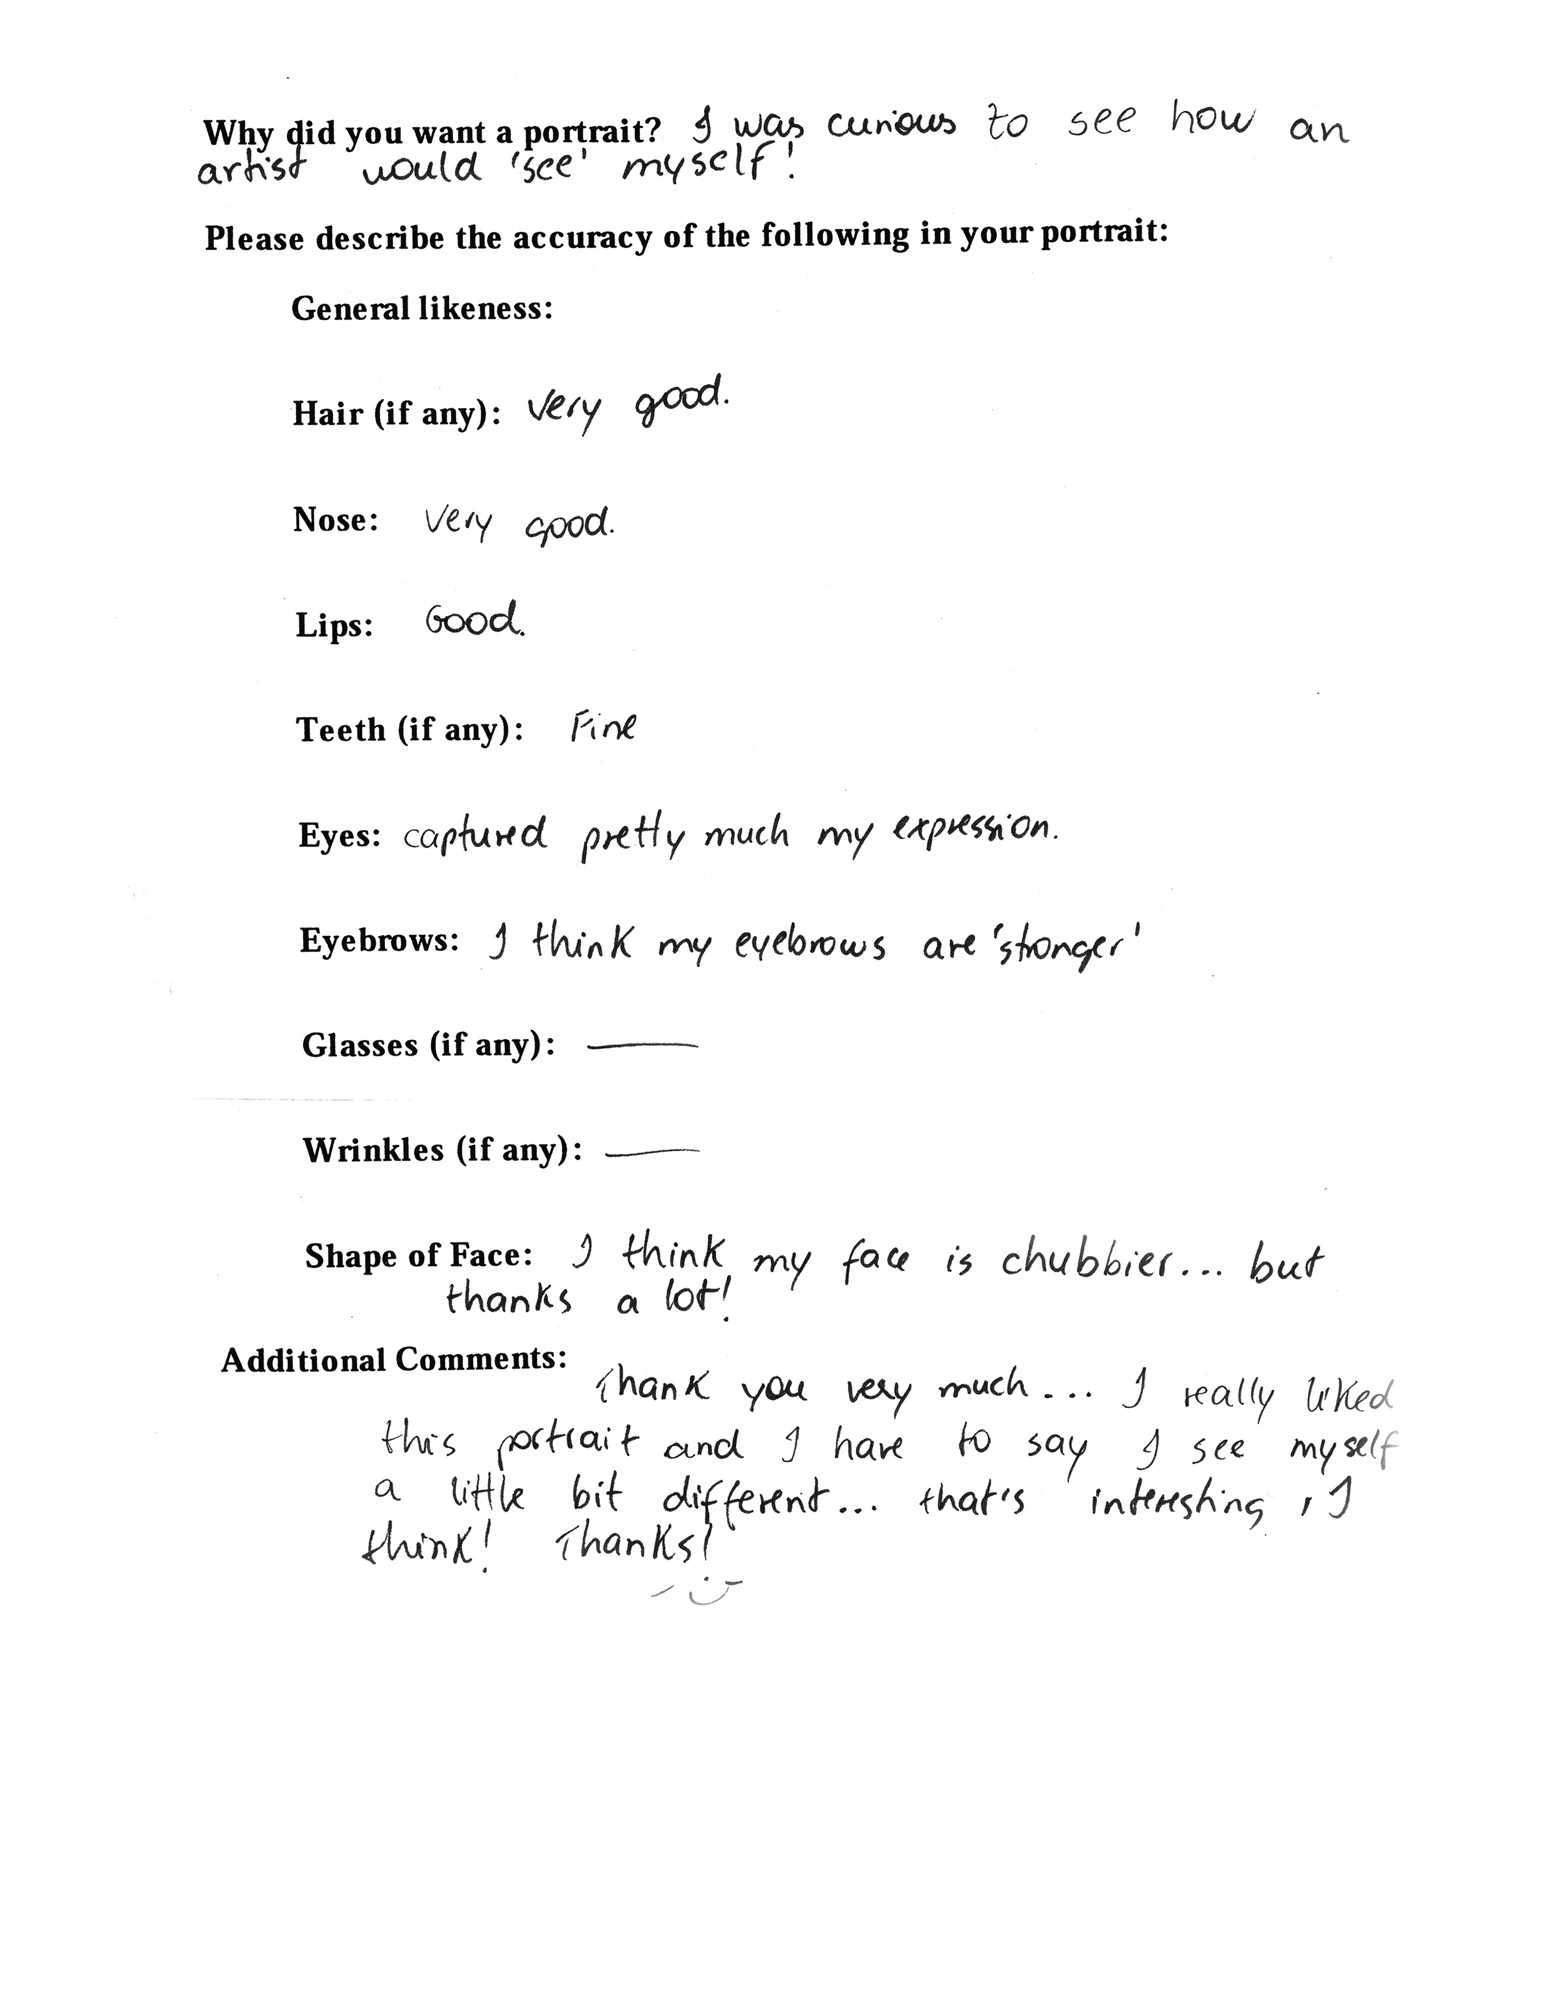 Why did you want a portrait? I was curious to see how an
artist would 'see' myself!
Please describe the accuracy of the following in your portrait:
General likeness:
Hair (if any): very good.
Nose: very good.
Lips: Good.
Teeth (if any): Fine
Eyes: captured pretty much my expression.
Eyebrows: I think my eyebrows are 'stronger'
Glasses (if any): —
Wrinkles (if any): —
Shape of Face: I think my face is chubbier... but
thanks a lot!
Additional Comments:
Thank you very much... I really liked
this portrait and I have to say I see myself
a little bit different... that's interesting, I
think! Thanks!